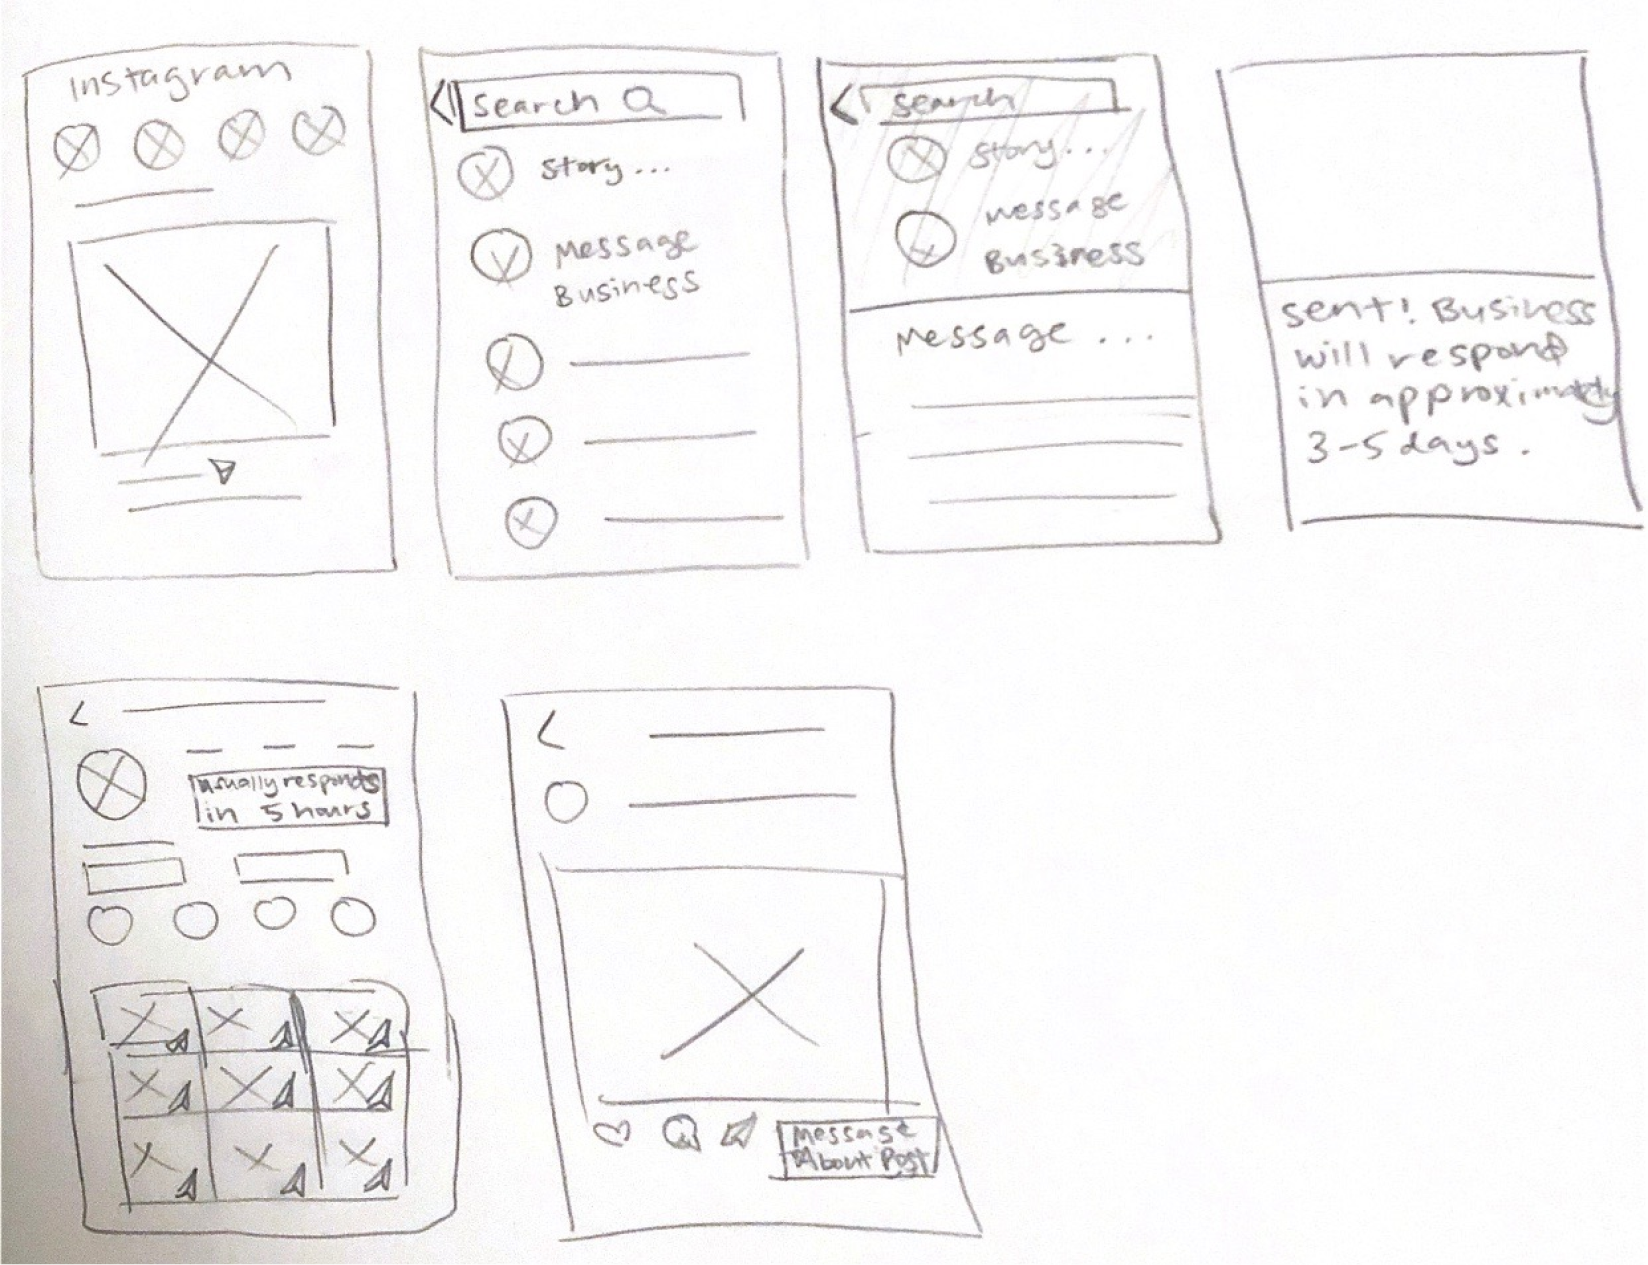 Instagram
search
story...
Message
Business
search
story...
message
Business
Message ...
sent! Business
will respond
in approximately
3-5 days.
usually responds
in 5 hours
Message
About Post